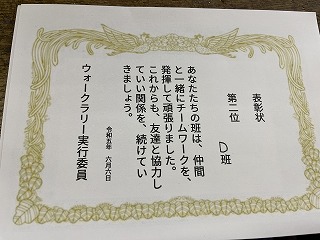 表彰状
第二位
D班
あなたたちの班は、仲間
と一緒にチームワークを、
発揮して頑張りました。
これからも、友達と協力し
ていい関係を、続けてい
きましょう。
令和五年 六月六日
ウォークラリー実行委員